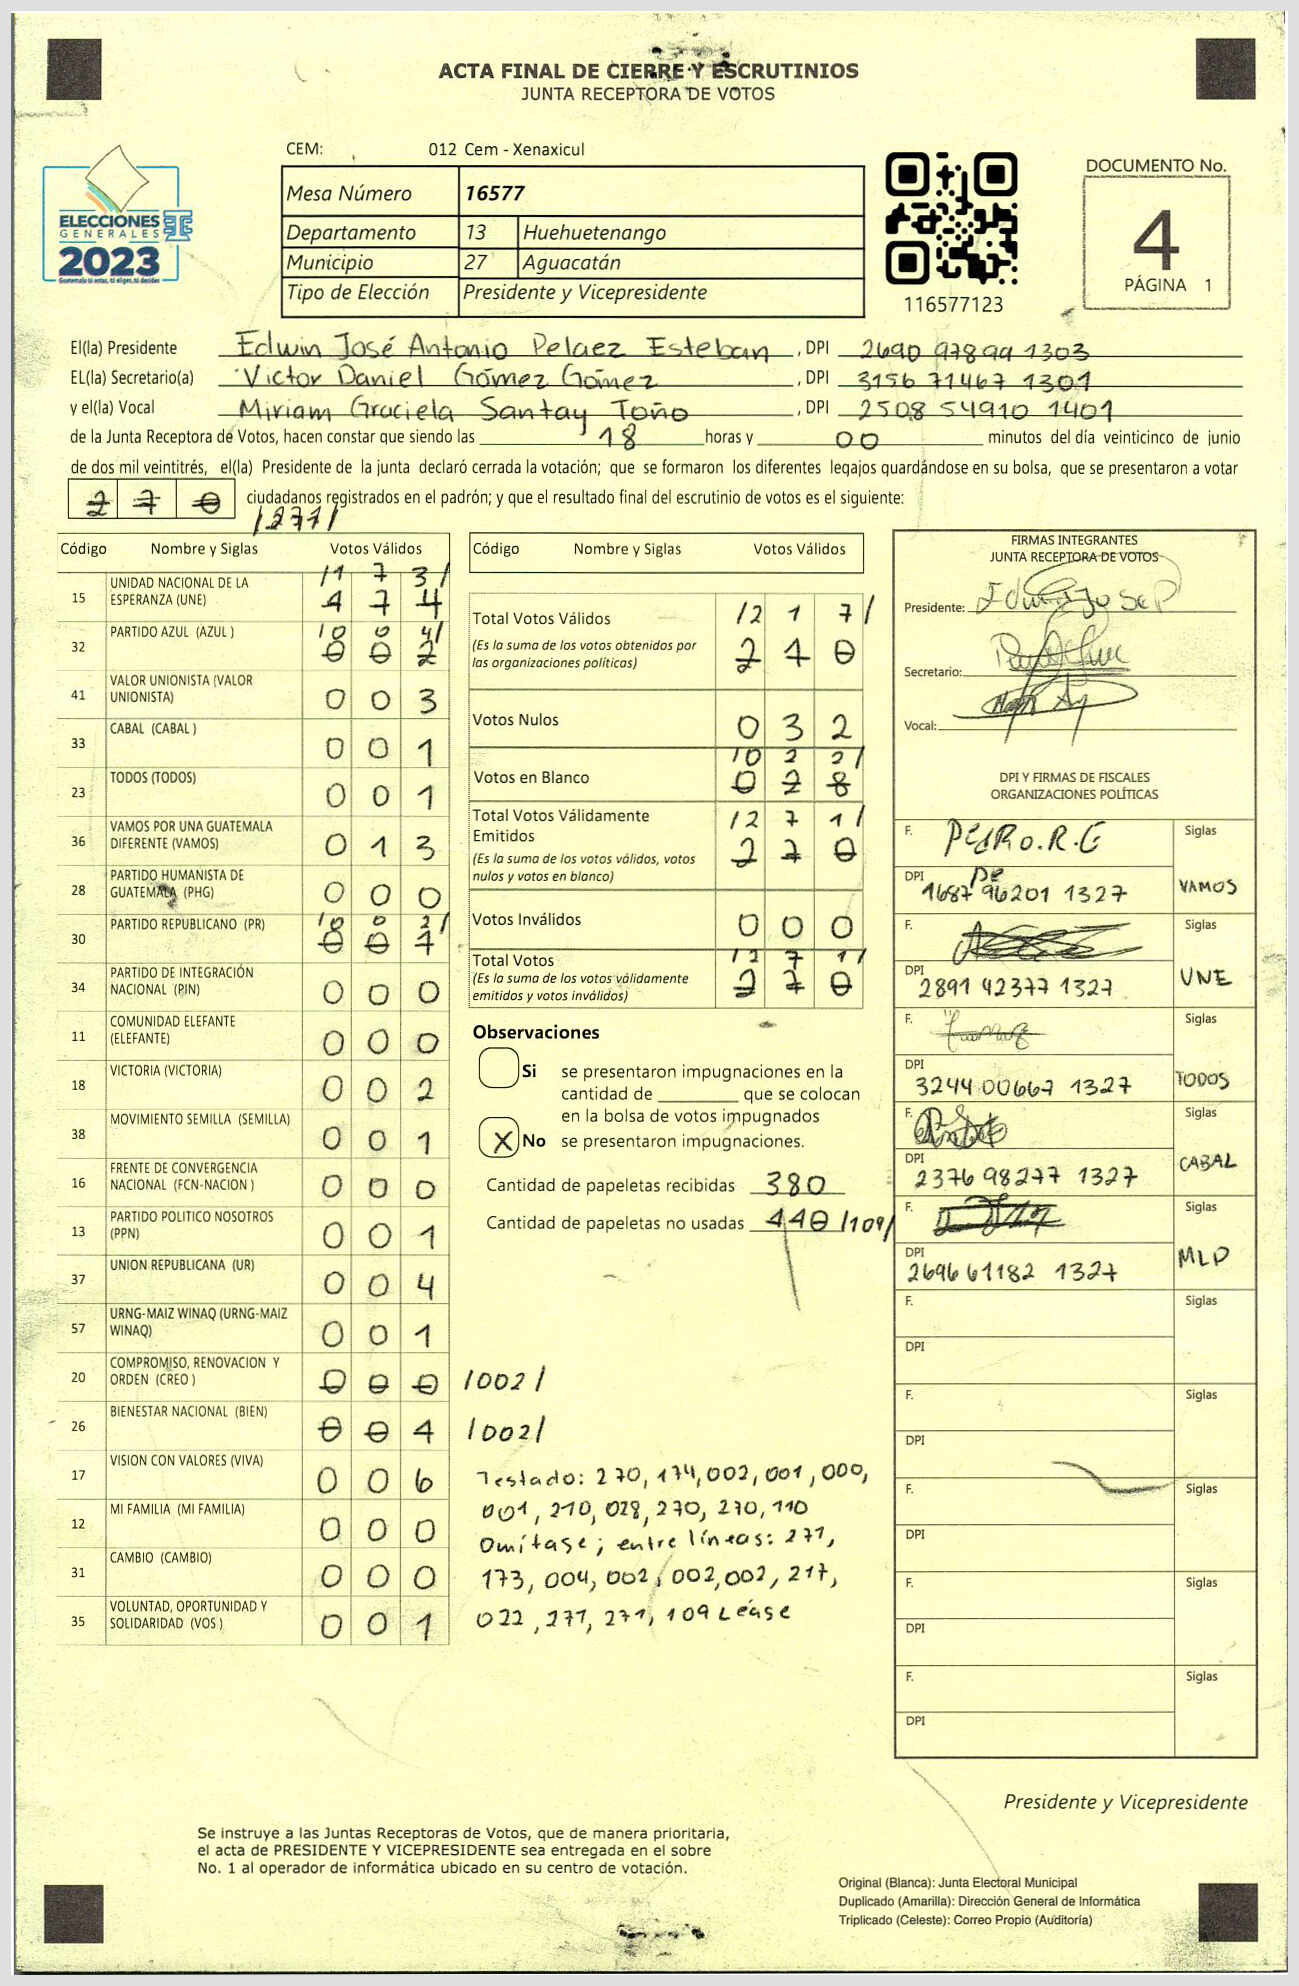 ACTA FINAL DE CIERRE Y ESCRUTINIOS
JUNTA RECEPTORA DE VOTOS
CEM: 012 Cem - Xenaxicul
Mesa Número 16577
Departamento 13 Huehuetenango
Municipio 27 Aguacatán
Tipo de Elección Presidente y Vicepresidente
ELECCIONES
GENERALES
2023
116577123
DOCUMENTO No.
4
PÁGINA 1
El(la) Presidente Edwin José Antonio Pelaez Esteban, DPI 2690 97899 1303
EL(la) Secretario(a) Victor Daniel Gómez Gómez, DPI 3156 71467 1301
y el(la) Vocal Miriam Graciela Santay Toño, DPI 2508 54910 1401
de la Junta Receptora de Votos, hacen constar que siendo las 18 horas y 00 minutos del día veinticinco de junio
de dos mil veintitrés, el(la) Presidente de la junta declaró cerrada la votación; que se formaron los diferentes legajos quardándose en su bolsa, que se presentaron a votar
2 7 0 ciudadanos registrados en el padrón; y que el resultado final del escrutinio de votos es el siguiente:
/271/
Código Nombre y Siglas Votos Válidos
/1 7 3/
15 UNIDAD NACIONAL DE LA ESPERANZA (UNE) 1 7 4
/0 0 4/
32 PARTIDO AZUL (AZUL ) 0 0 2
41 VALOR UNIONISTA (VALOR UNIONISTA) 0 0 3
33 CABAL (CABAL ) 0 0 1
23 TODOS (TODOS) 0 0 1
36 VAMOS POR UNA GUATEMALA DIFERENTE (VAMOS) 0 1 3
28 PARTIDO HUMANISTA DE GUATEMALA (PHG) 0 0 0
/0 0 2/
30 PARTIDO REPUBLICANO (PR) 0 0 1
34 PARTIDO DE INTEGRACIÓN NACIONAL (PIN) 0 0 0
11 COMUNIDAD ELEFANTE (ELEFANTE) 0 0 0
18 VICTORIA (VICTORIA) 0 0 2
38 MOVIMIENTO SEMILLA (SEMILLA) 0 0 1
16 FRENTE DE CONVERGENCIA NACIONAL (FCN-NACION ) 0 0 0
13 PARTIDO POLITICO NOSOTROS (PPN) 0 0 1
37 UNION REPUBLICANA (UR) 0 0 4
57 URNG-MAIZ WINAQ (URNG-MAIZ WINAQ) 0 0 1
20 COMPROMISO, RENOVACION Y ORDEN (CREO ) 0 0 0 /002/
26 BIENESTAR NACIONAL (BIEN) 0 0 1 /002/
17 VISION CON VALORES (VIVA) 0 0 6
12 MI FAMILIA (MI FAMILIA) 0 0 0
31 CAMBIO (CAMBIO) 0 0 0
35 VOLUNTAD, OPORTUNIDAD Y SOLIDARIDAD (VOS ) 0 0 1
Código Nombre y Siglas Votos Válidos
Total Votos Válidos /2 1 7/
(Es la suma de los votos obtenidos por las organizaciones políticas) 2 1 0
Votos Nulos 0 3 2
/0 2 2/
Votos en Blanco 0 2 8
Total Votos Válidamente Emitidos /2 7 1/
(Es la suma de los votos válidos, votos nulos y votos en blanco) 2 7 0
Votos Inválidos 0 0 0
Total Votos /2 7 1/
(Es la suma de los votos válidamente emitidos y votos inválidos) 2 7 0
Observaciones
Si se presentaron impugnaciones en la
cantidad de ________ que se colocan
en la bolsa de votos impugnados
X No se presentaron impugnaciones.
Cantidad de papeletas recibidas 380
Cantidad de papeletas no usadas 110 /109/
Testado: 270, 174, 002, 001, 000,
001, 210, 028, 270, 270, 110
Omítase; entre líneas: 271,
173, 004, 002, 002, 002, 217,
022, 271, 271, 109 Léase
FIRMAS INTEGRANTES
JUNTA RECEPTORA DE VOTOS
Presidente:
Secretario:
Vocal:
DPI Y FIRMAS DE FISCALES
ORGANIZACIONES POLÍTICAS
F. PEDRO.R.G Siglas
DPI 1687 96201 1327 VAMOS
F. Siglas
DPI 2891 42377 1327 UNE
F. Siglas
DPI 3244 00667 1327 TODOS
F. Siglas
DPI 2376 98277 1327 CABAL
F. Siglas
DPI 2696 61182 1327 MLP
F. Siglas
DPI
F. Siglas
DPI
F. Siglas
DPI
F. Siglas
DPI
F. Siglas
DPI
Presidente y Vicepresidente
Se instruye a las Juntas Receptoras de Votos, que de manera prioritaria,
el acta de PRESIDENTE Y VICEPRESIDENTE sea entregada en el sobre
No. 1 al operador de informática ubicado en su centro de votación.
Original (Blanca): Junta Electoral Municipal
Duplicado (Amarilla): Dirección General de Informática
Triplicado (Celeste): Correo Propio (Auditoría)